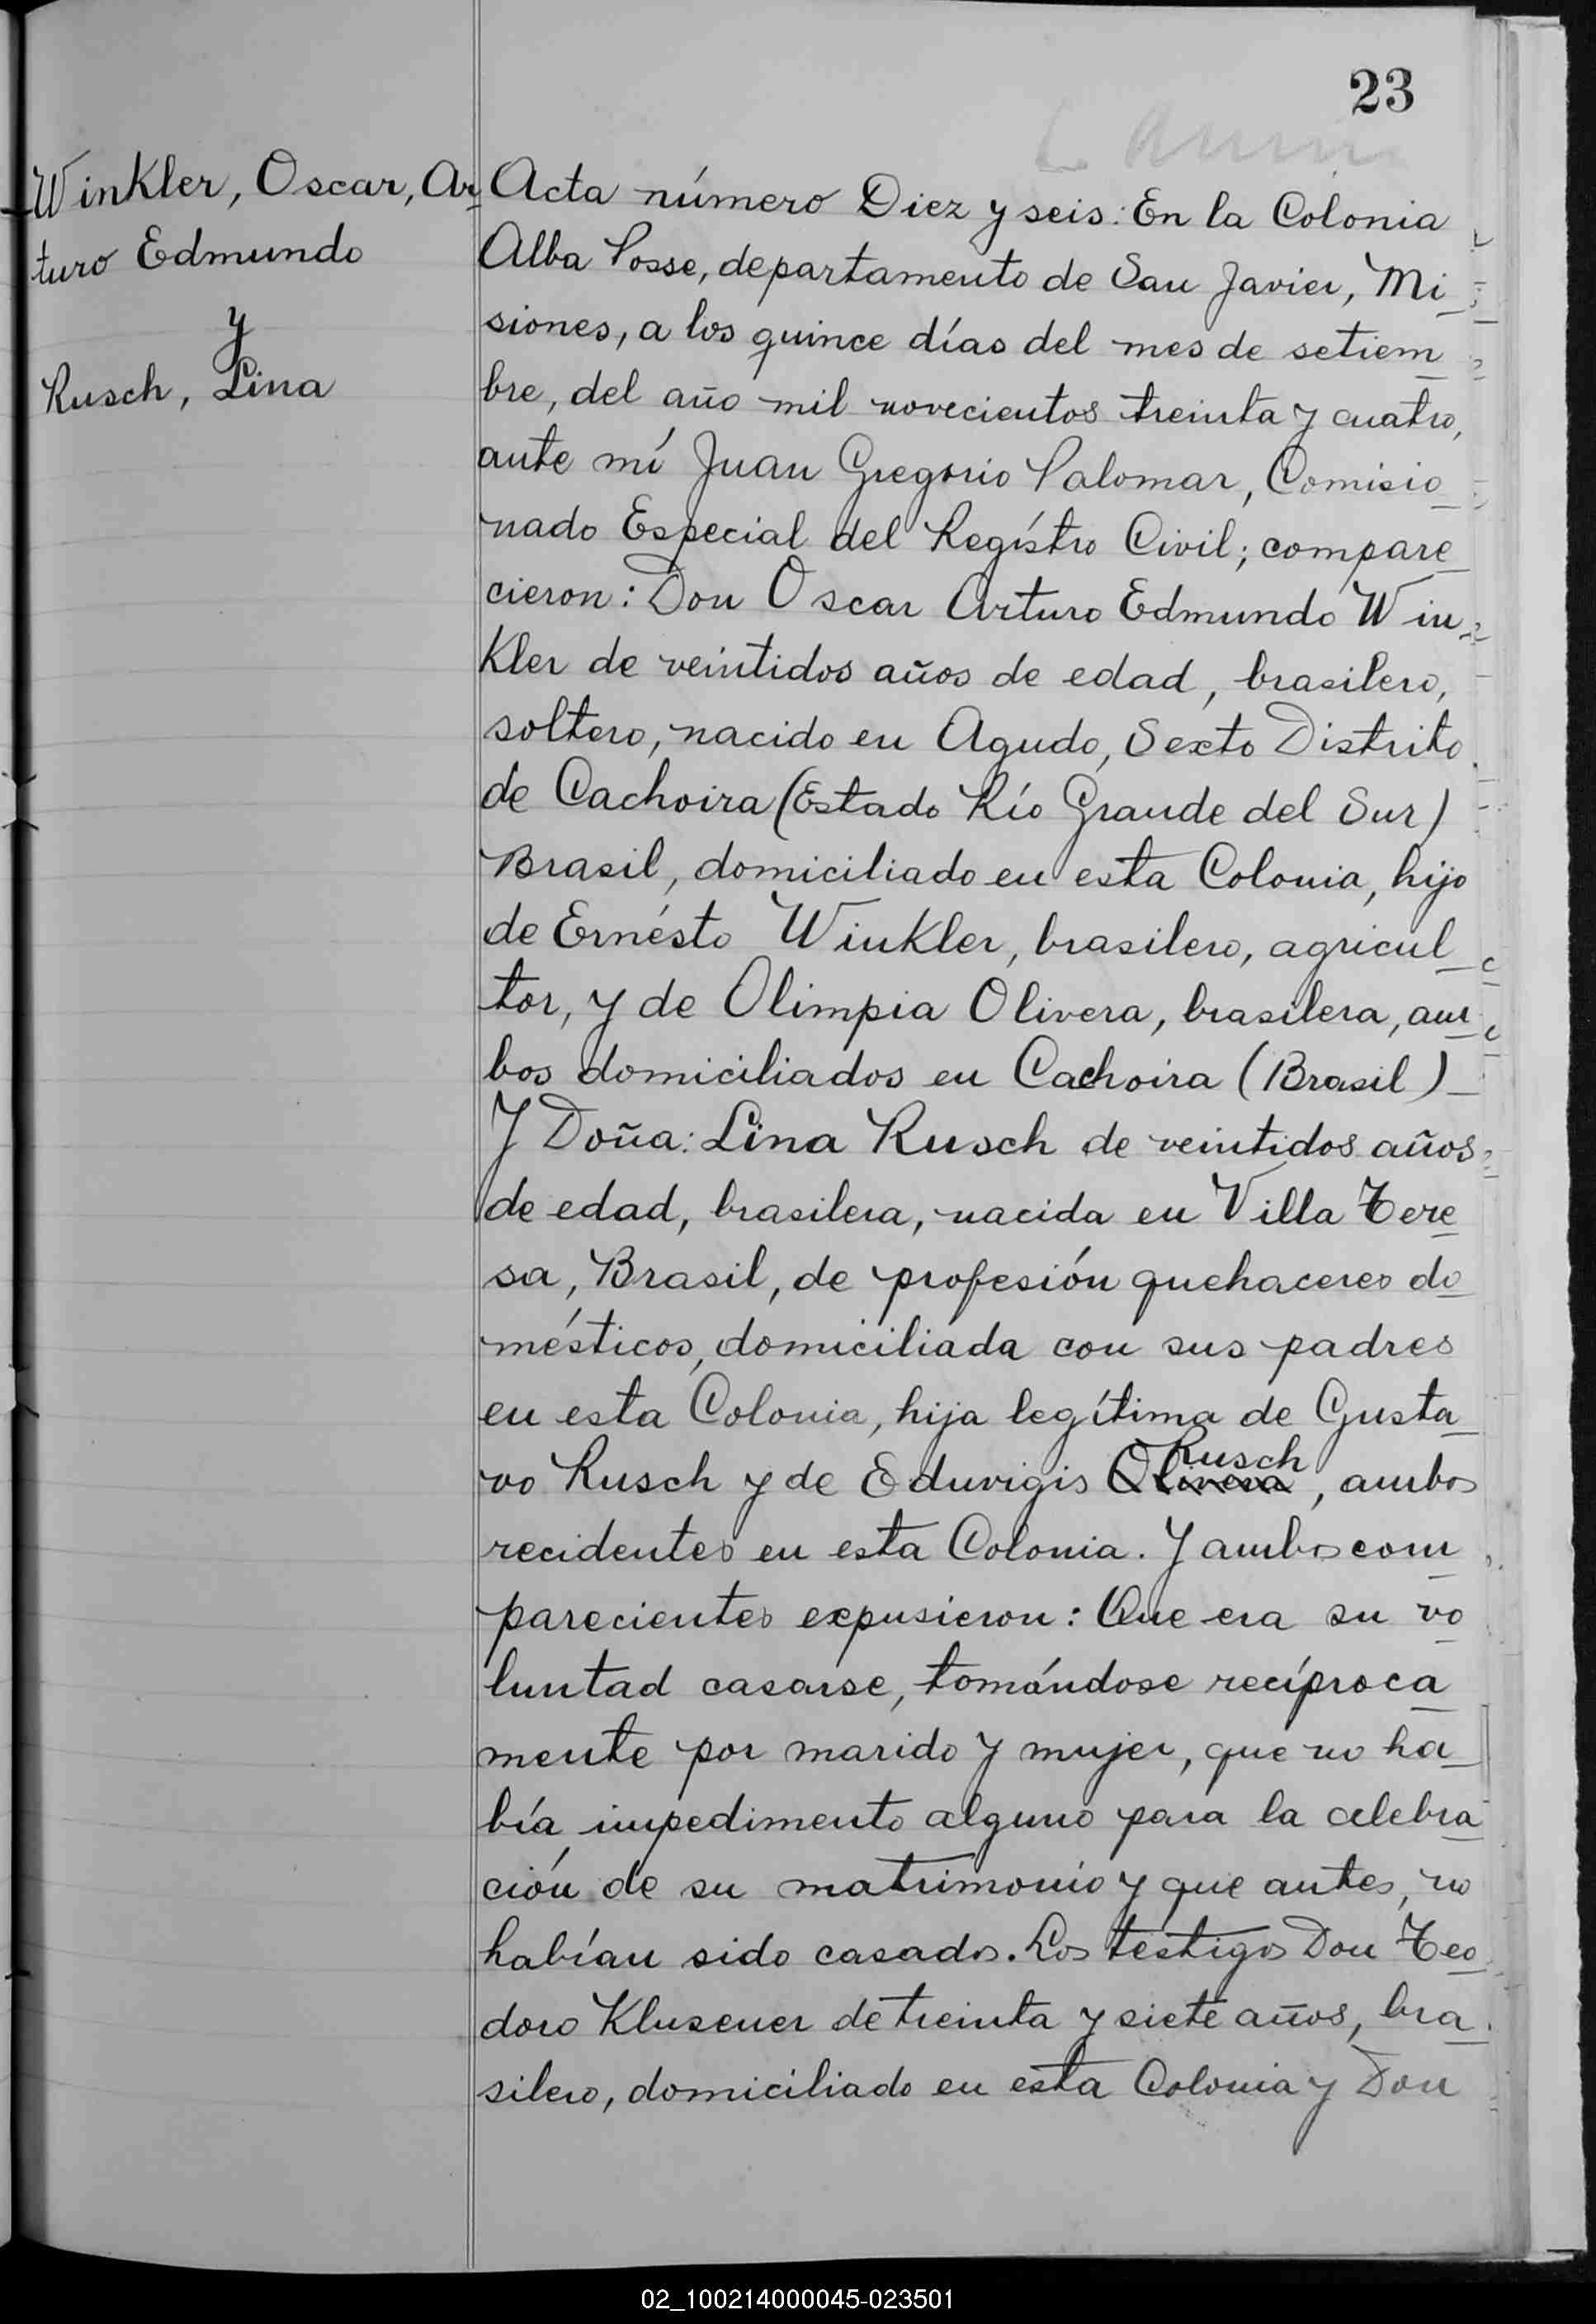 23
Winkler, Oscar, Ar
turo Edmundo
y
Rusch, Lina
Acta número Diez y seis: En la Colonia
Alba Posse, departamento de San Javier, Mi
siones, a los quince días del mes de setiem
bre, del año mil novecientos treinta y cuatro,
ante mí Juan Gregorio Palomar, Comisio
nado Especial del Regístro Civil; compare
cieron: Don Oscar Arturo Edmundo Win
Kler de veintidos años de edad, brasilero,
soltero, nacido en Agudo, Sexto Distrito
de Cachoira (Estado Río Grande del Sur)
Brasil, domiciliado en esta Colonia, hijo
de Ernésto Winkler, brasilero, agricul
tor, y de Olimpia Olivera, brasilera, am
bos domiciliados en Cachoira (Brasil)
Y Doña: Lina Rusch de veintidos años
de edad, brasilera, nacida en Villa Tere
sa, Brasil, de profesión quehaceres do
mésticos, domiciliada con sus padres
en esta Colonia, hija legítima de Gusta
Rusch
vo Rusch y de Eduvigis Olivera, ambos
recidentes en esta Colonia. Y ambos com
parecientes expusieron: Que era su vo
luntad casarse, tomándose recíproca
mente por marido y mujer, que no ha
bía impedimento alguno para la celebra
ción de su matrimonio y que antes, no
habían sido casados. Los testigos Don Teo
doro Klusener de treinta y siete años, bra
silero, domiciliado en esta Colonia y Don
02_100214000045-023501